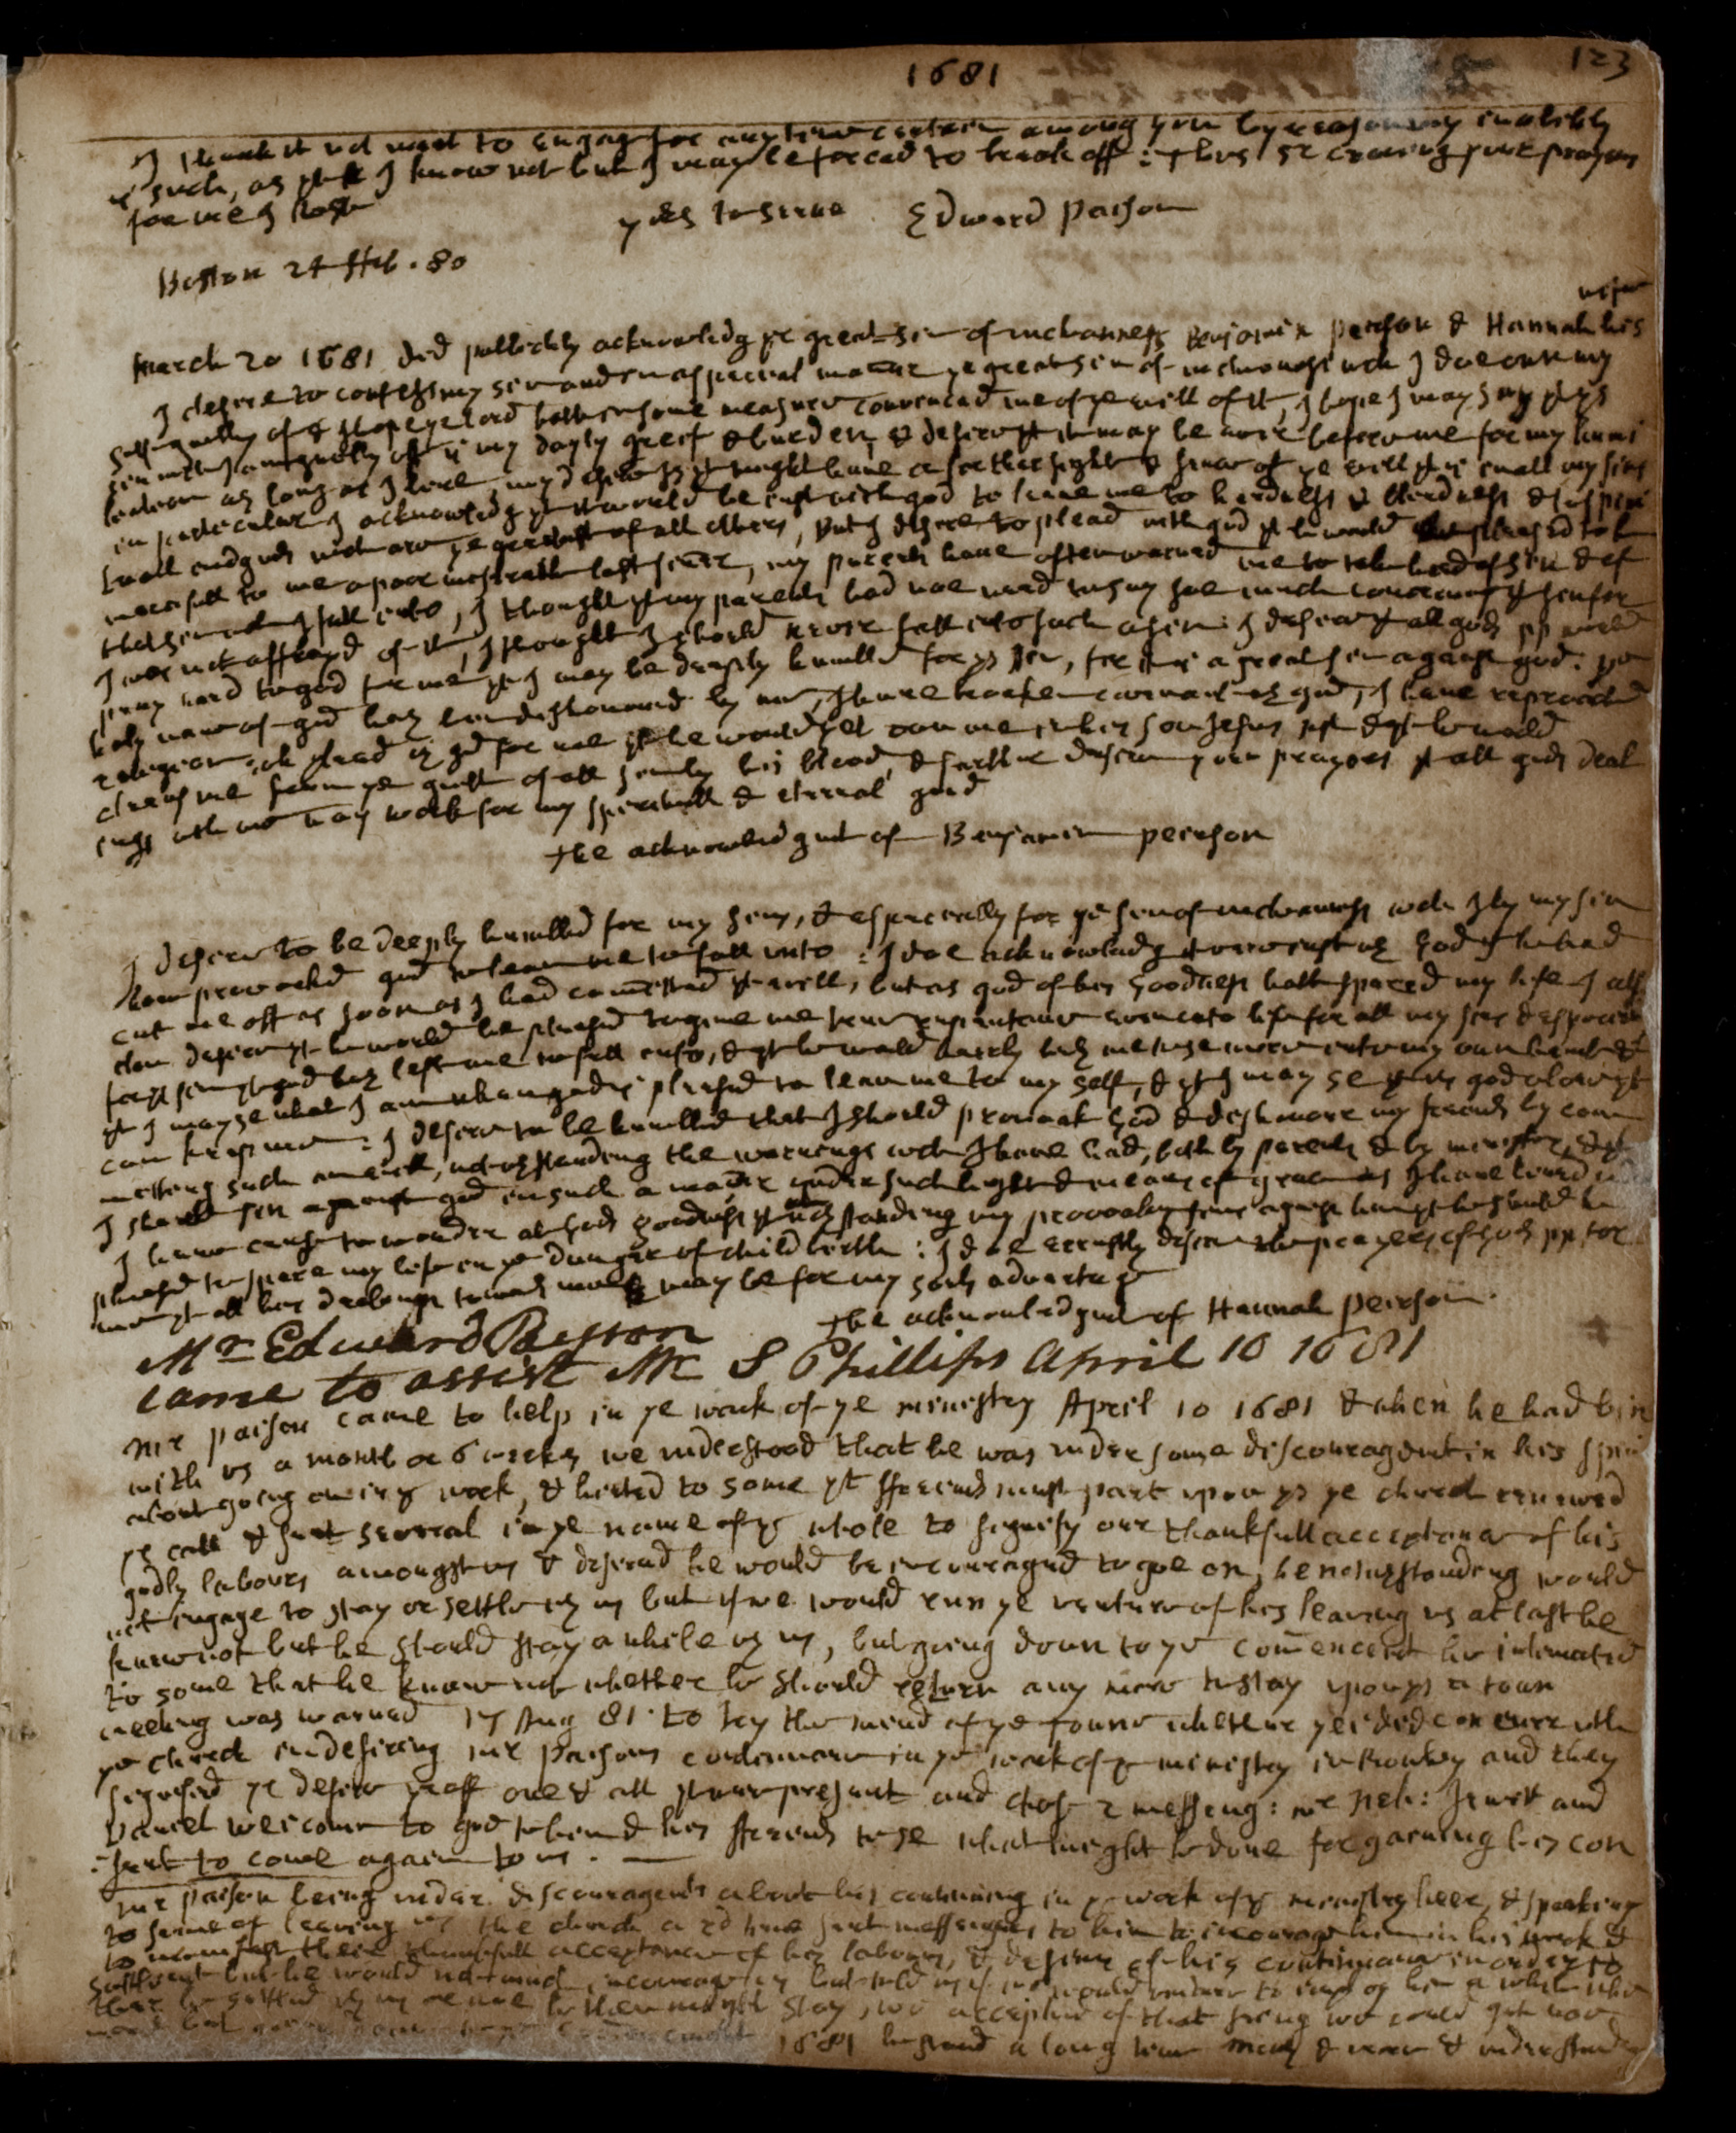 1681
123
I think it not meet to engage for any time certain among you by reason my inability
is such, as yt I know not but I may be forced to break off: thus Sr craving your prayers
for me I rest
yors to serve Edward Paison
Boston 24 ffeb. 80
wife
March 20 1681 did publickly acknowledg ye great sin of uncleanness Benjamin peirson & Hannah his
I desire to confess my sin and in aspeciall maner ye great sin of uncleanness wch I doe own my
self guilty of & I hope ye lord hath in some measure convenced me of ye evill of it, I hope I may say yt ys
sin wch I am guilty of is my dayly greef & burden, & desire yt it may be ever before me for my humi
leation as long as I live my desire is yt I might have a farther sight & sence of ye evill yt is in all my sins
in perticular I acknowledg yt it would be just with god to leave me to hardness & blindness &
small Judgmts which are ye greatest of all others, but I desire to plead with god yt he would be pleased to be
mercifull to me a poor lost, my parents have often warned me to take heed of sin & of
that sin wch I fell into, I thought yt my parents had noe need to say soe much concerning yt sin for
I was not affraid of it, I thought I should never fall into such a sin: I desire yt all gods pp would
pray hard to god for me yt I may be deeply humbled for ys sin, for it is a great sin against god: ye
holy name of god has been dishonoured by me, I have broken covenant wth god, I have reproached
religion; oh plead wth god for me yt he would yet own me in his son Jesus & yt he would
cleans me from ye guilt of all sin by his blood, & farther desire your prayers yt all gods deal
ings with me may work for my spirituall & eternal good
the acknowledgmt of Benjamin peerson
I desire to be deeply humbled for my sins, & especcially for ye sin of uncleanness wch I by my sin
have provoked god to leave me to fall into: I doe acknowledg it were just wth god if he had
cut me off as soon as I had committed yt evill, but as god of his goodness hath spared my life I also
doe desire yt he would be pleased to give me true repentance unto life for all my sins &
for yt sin yt god has left me to fall into, & yt he would hereby me to see more into my own heart &
yt I may se what I am when god is pleased to leave me to my self, & yt I may se yt it is god alone yt
can keep me: I desire to be humbled that I should provoak god & dishonore my freinds by com
mitting such an evill, notwthstanding the warnings wch I have had, both by parents & by ministers, & yt
I should sin against god in such a maner under such light & means of grace as I have lived
I have cause to wonder at gods goodness yt notwthstanding my provoaking sins against him yt he should be
pleased to spare my life in ye danger of childbirth: I doe ernestly desire the prayers of gods pp for
me yt all his dealings towards me may be for my souls advantage
the acknowledgmt of Hannah peirson.
Mr Edward Payson
came to assist Mr S Phillips April 10 1681
mr paison came to help in ye work of ye ministry April 10 1681 & when he had bin
with us a month or 6 weeks we understood that he was under some discouragemt in his spirit
about going on in ys work, & hinted to some yt ffreinds must part upon ys ye church renewed
ye call & sent severall in ye name of ye whole to signify our thankfull acceptance of his
godly labours amongst us & desired he would be incouraged to goe on, he notwthstanding would
not engage to stay or settle wth us but if we would run ye venture of his leaving us at last he
knew not but he should stay a while wth us, but going down to ye comencemt he intimated
to some that he knew not whether he should return any more to stay upon ys a town
meeting was warned 17 Aug 81. to try the mind of ye towne whether yei did concurr wth
ye church in desiring mr paisons continuance in ye work of ye ministry in Rowley and they
signifed ye desire yrof one & all yt were present and chose 2 messeng: mr Neh: Jewet and
Daniel weicome to goe to him & his ffreinds to se what might be done for gaining his con
sent to come again to us.
mr paison being under discouragemts about his continuing in ye work of ye ministry heer, & speaking
to some of leaving us the church a 2d time sent messengers to him to incourage him in his work &
to manifest their thankfull acceptance of his labours, & desires of his continuance in order to
settlemt but he would not incourage us but told us if we would venture to imploy him a while who
there he settled wth us or noe he then might stay, we accepted of that seing we could get noe
more but 1681 he staid a long time & we understanding